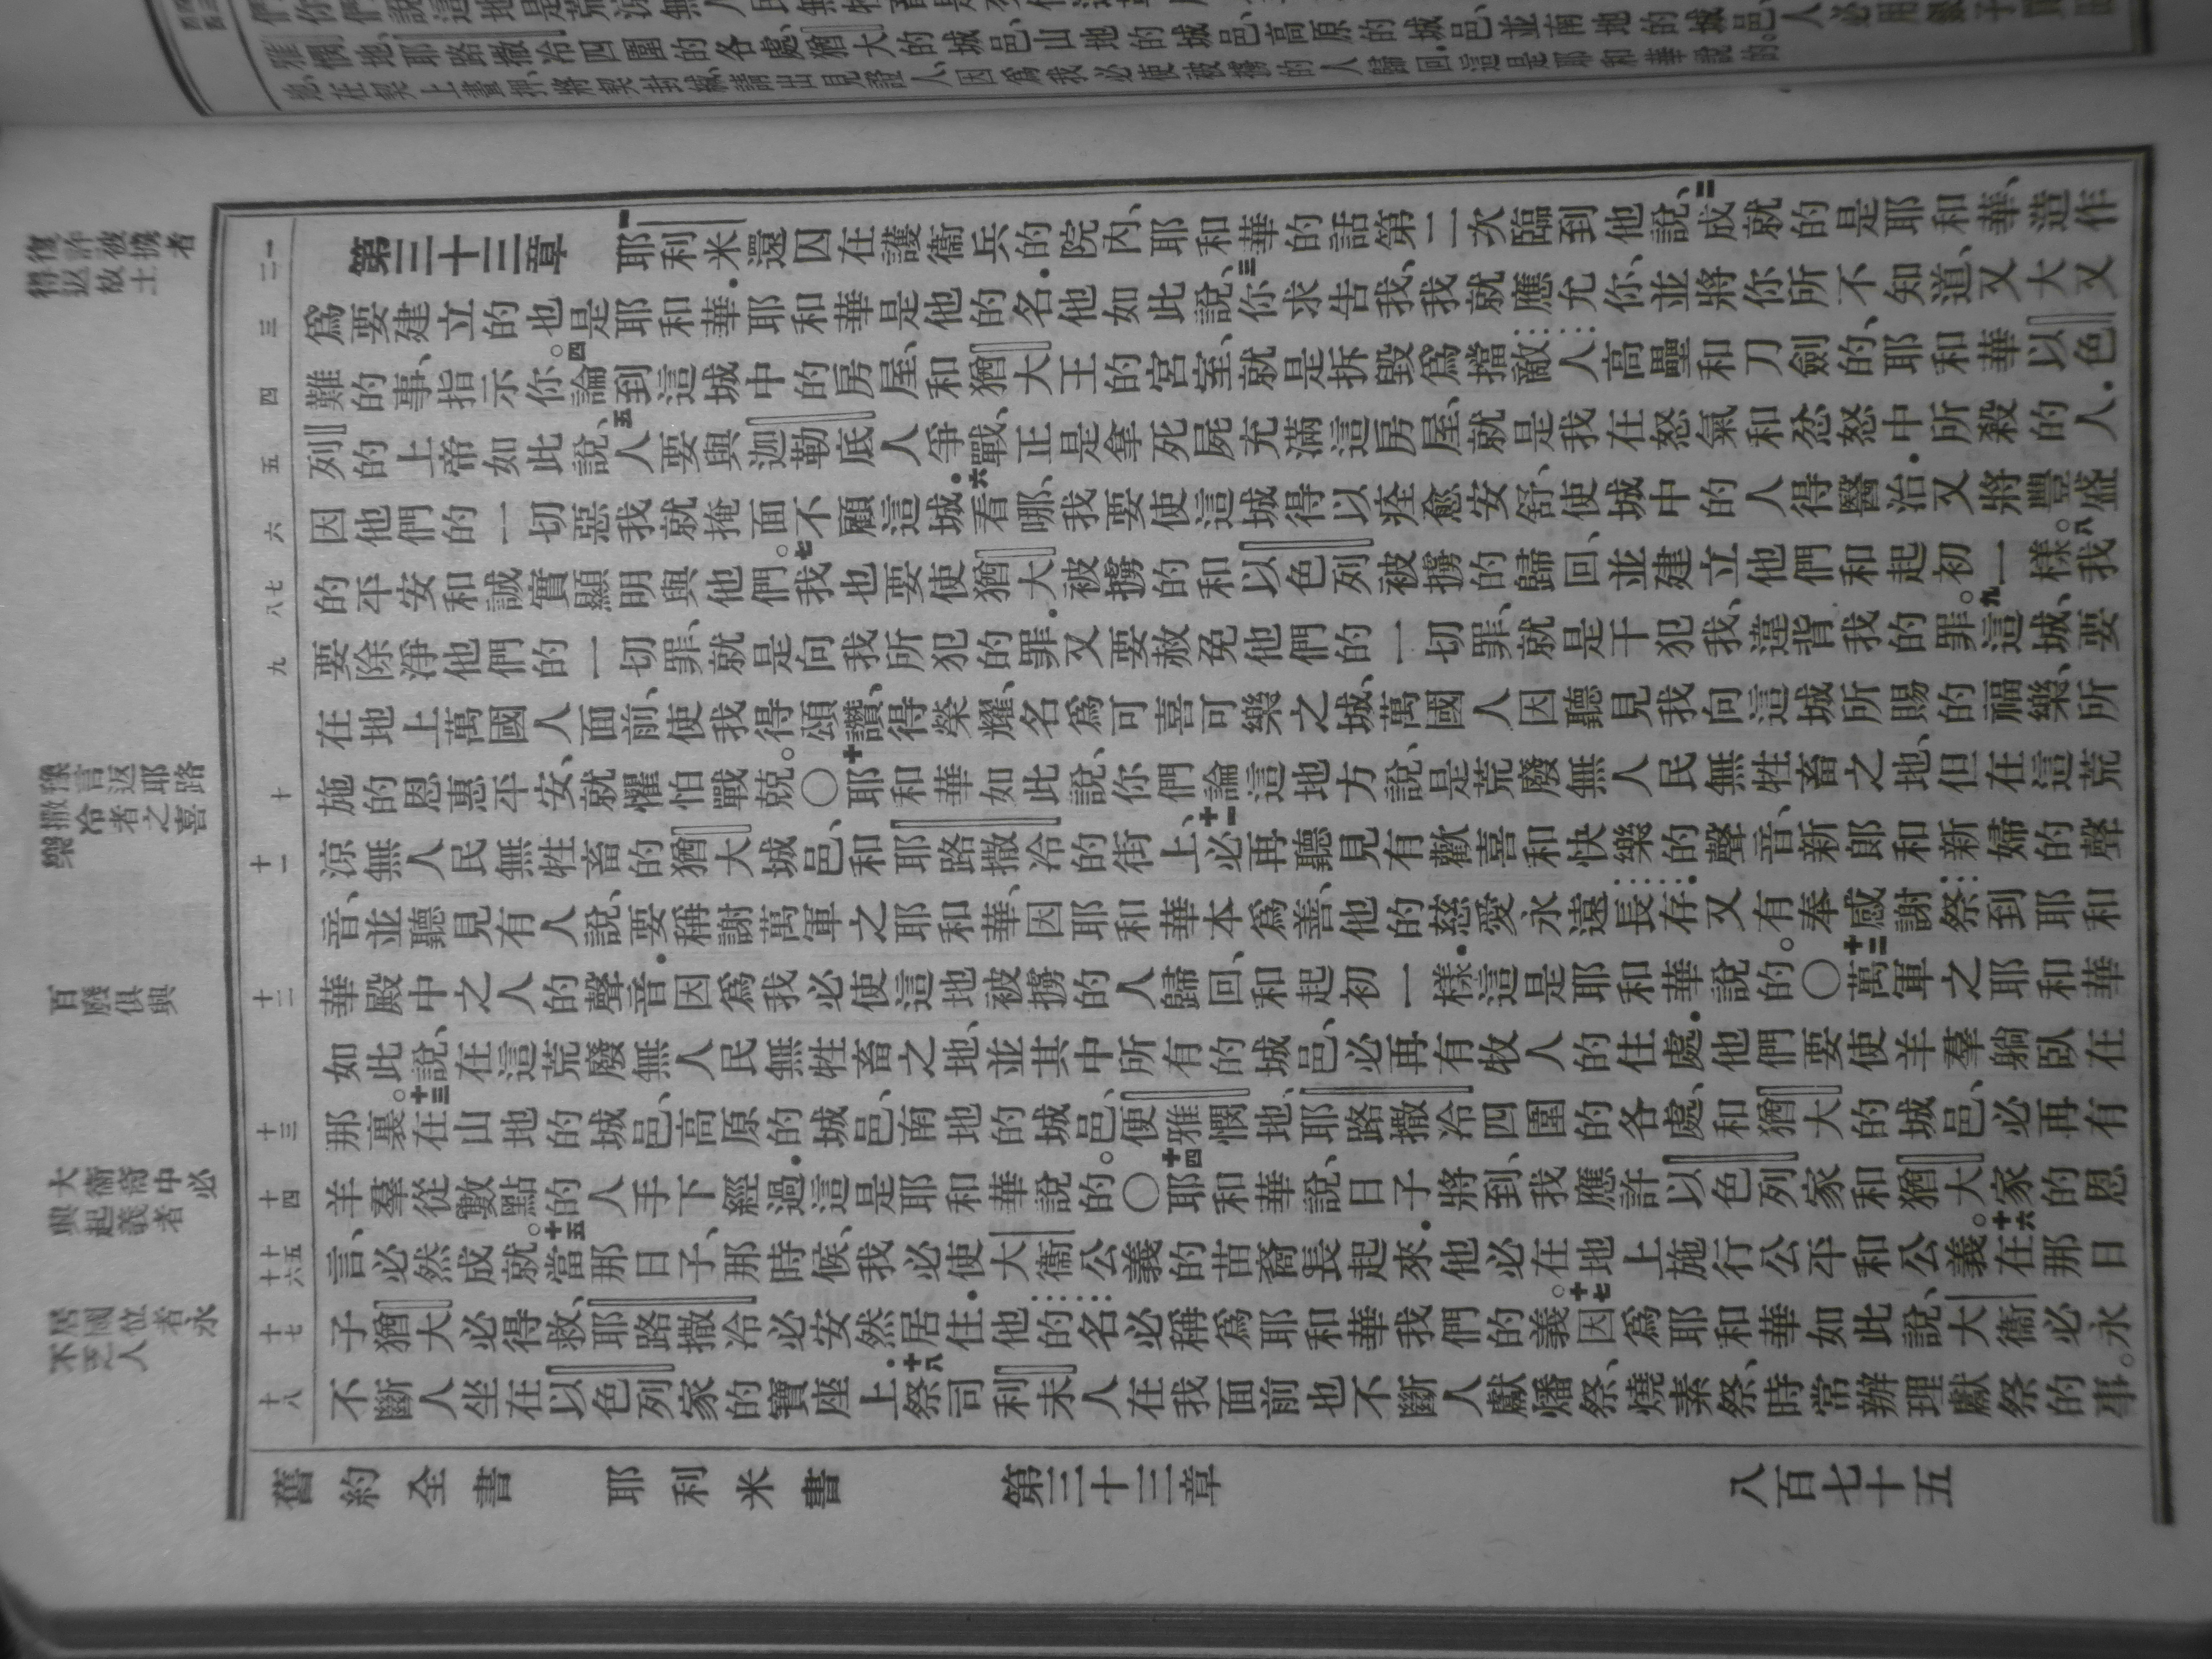 雅憫地、耶路撒冷四圍的各處、猶大的城邑、山地的城邑、高原的城邑、並南地的城邑、人必用銀子買田
地、在契上畫押、將契封緘、請出見證人、因爲我必使被擄的人歸回．這是耶和華說的。
復許被擄者
得返故土
第三十三章 一耶利米還囚在護衞兵的院內、耶和華的話第二次臨到他說、二成就的是耶和華、造作
爲要建立的也是耶和華．耶和華是他的名．他如此說、三你求告我、我就應允你、並將你所不知道、又大又
難的事、指示你。四論到這城中的房屋、和猶大王的宮室、就是拆毀爲擋敵人高壘和刀劍的、耶和華以色
列的上帝如此說、五人要與迦勒底人爭戰、正是拿死屍充滿這房屋、就是我在怒氣和忿怒中所殺的人．
因他們的一切惡、我就掩面不顧這城．六看哪、我要使這城得以痊愈安舒、使城中的人得醫治．又將豐盛
的平安和誠實顯明與他們。七我也要使猶大被擄的和以色列被擄的歸回、並建立他們和起初一樣。八我
要除淨他們的一切罪、就是向我所犯的罪．又要赦免他們的一切罪、就是干犯我、違背我的罪。九這城、要
在地上萬國人面前、使我得頌讚、得榮耀、名爲可喜可樂之城、萬國人因聽見我向這城所賜的福樂、所
施的恩惠平安、就懼怕戰兢。○十耶和華如此說、你們論這地方、說是荒廢無人民無牲畜之地、但在這荒
涼無人民無牲畜的猶大城邑、和耶路撒冷的街上、十一必再聽見有歡喜和快樂的聲音、新郎和新婦的聲
音、並聽見有人說、要稱謝萬軍之耶和華、因耶和華本爲善、他的慈愛永遠長存．又有奉感謝祭到耶和
華殿中之人的聲音．因爲我必使這地被擄的人歸回、和起初一樣．這是耶和華說的。○十二萬軍之耶和華
如此說、在這荒廢無人民無牲畜之地、並其中所有的城邑、必再有牧人的住處．他們要使羊羣躺臥在
那裏。十三在山地的城邑、高原的城邑、南地的城邑、便雅憫地、耶路撒冷四圍的各處、和猶大的城邑、必再有
羊羣從數點的人手下經過．這是耶和華說的。○十四耶和華說、日子將到、我應許以色列家和猶大家的恩
言、必然成就。十五當那日子、那時候、我必使大衞公義的苗裔長起來．他必在地上施行公平和公義。十六在那日
子猶大必得救、耶路撒冷必安然居住．他的名必稱爲耶和華我們的義。十七因爲耶和華如此說、大衞必永
不斷人坐在以色列家的寶座上．十八祭司利未人在我面前也不斷人獻燔祭、燒素祭、時常辦理獻祭的事。
豫言返耶路
撒冷者之喜
樂
百廢俱興
大衞裔中必
興起義者
居國位者永
不乏人
一 二 三 四 五 六 七 八 九 十 十一 十二 十三 十四 十五 十六 十七 十八
舊約全書 耶利米書 第三十三章 八百七十五